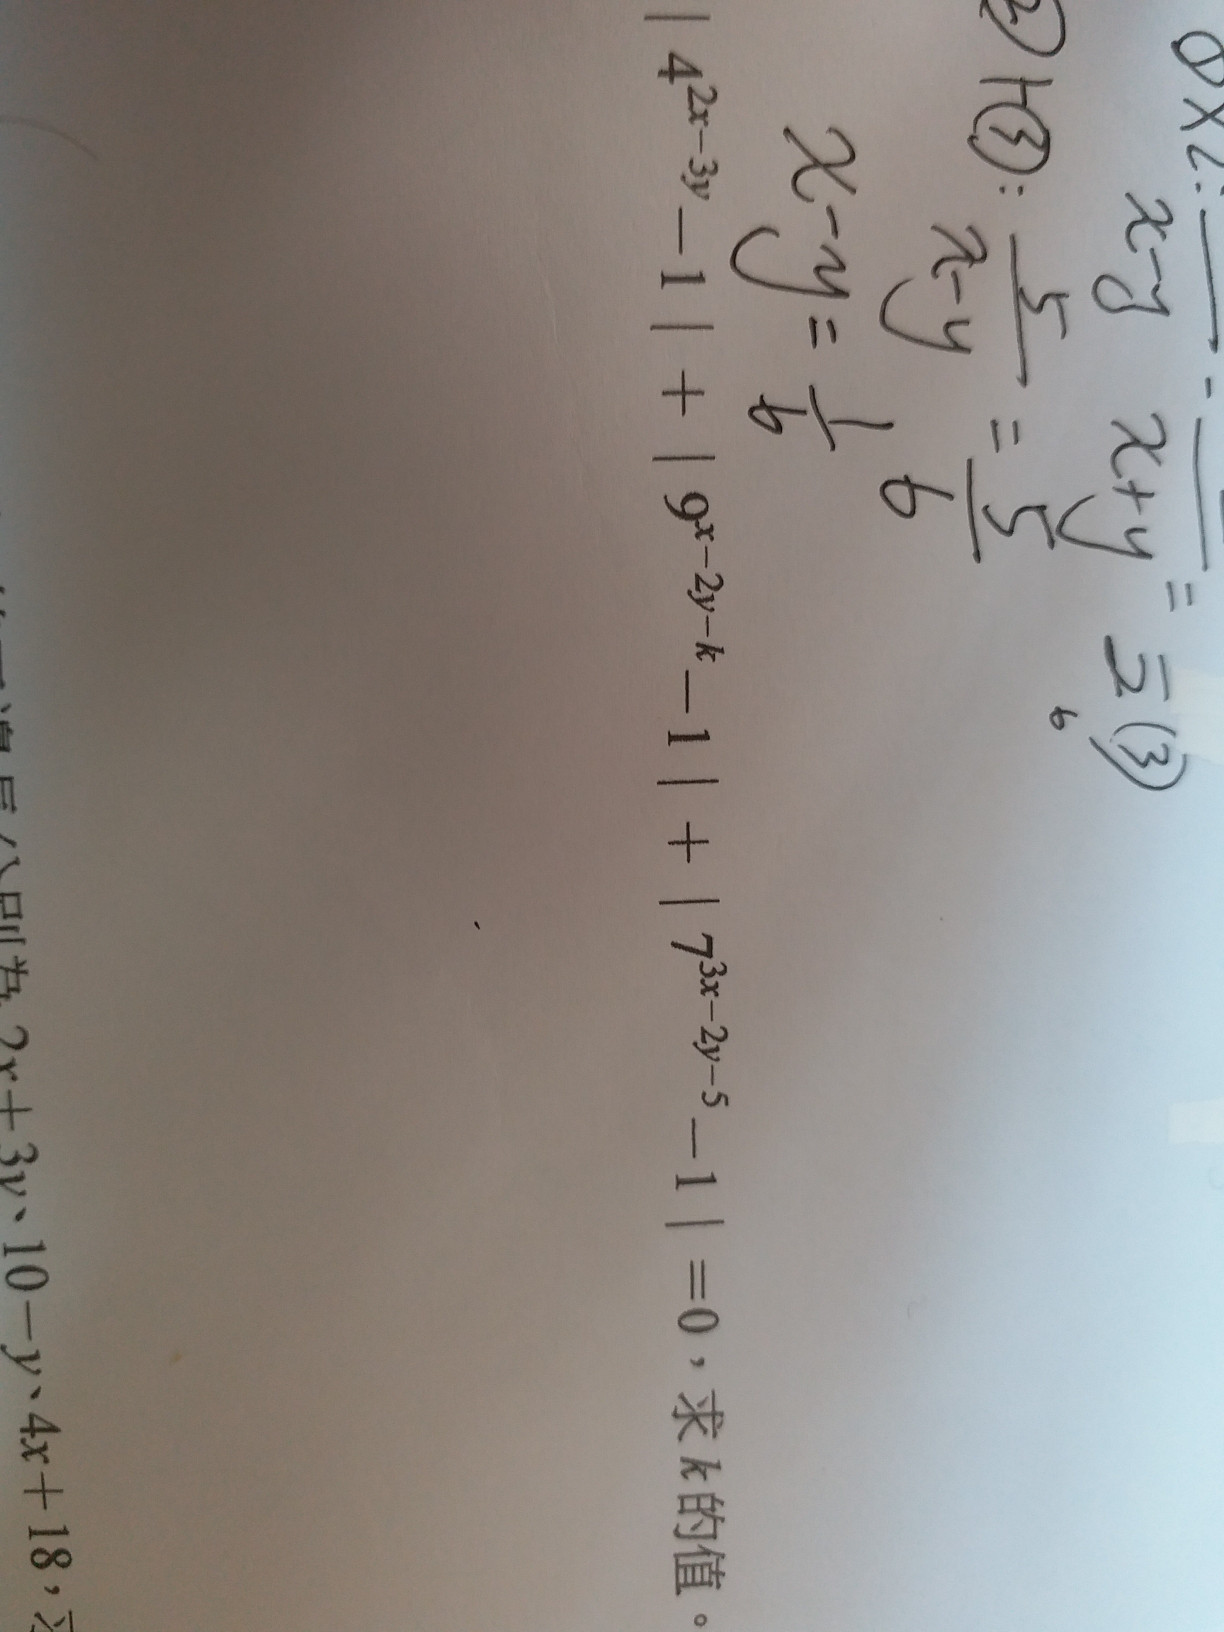 ①×2: — - — = 5/6 ③
x-y x+y
②+③: 5/x-y = 5/6
x-y = 1/6
| 4^{2x-3y} - 1 | + | 9^{x-2y-k} - 1 | + | 7^{3x-2y-5} - 1 | = 0，求 k 的值。
邊長分別為 2x+3y、10-y、4x+18，